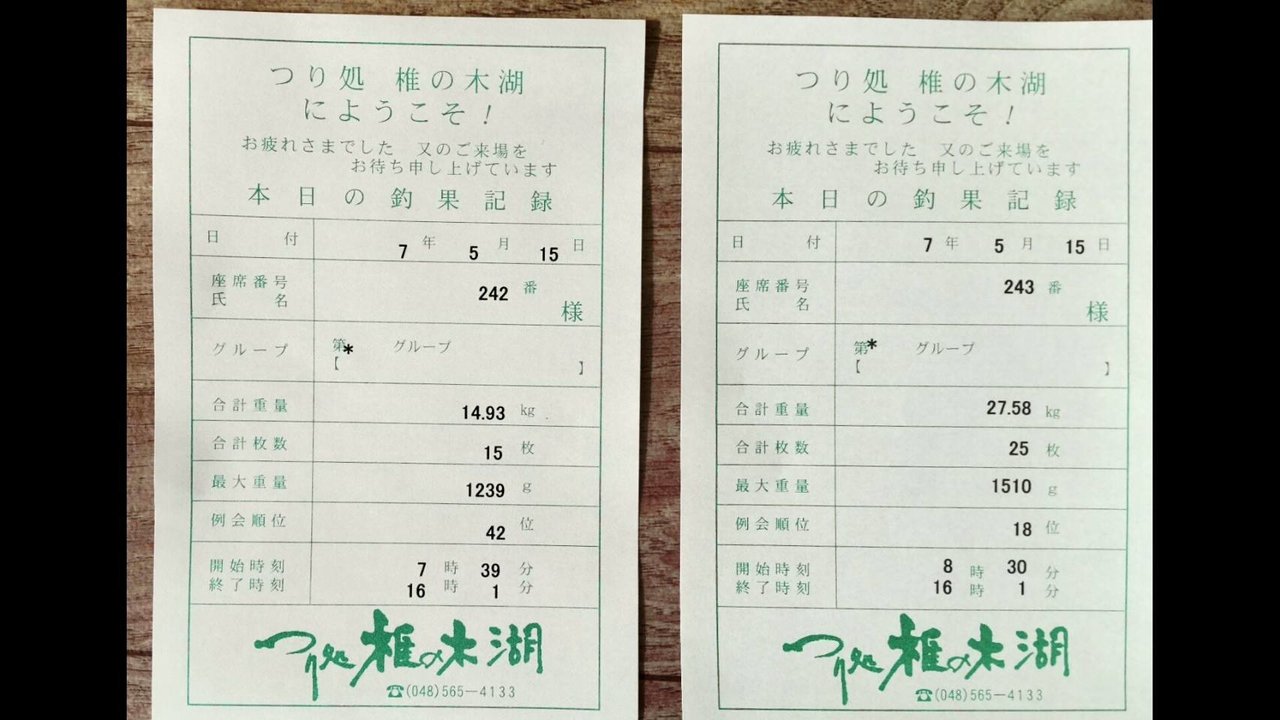 つり処 椎の木湖
にようこそ！
お疲れさまでした 又のご来場を
お待ち申し上げています
本日の釣果記録
日付 7年 5月 15日
座席番号 242番
氏名 様
グループ 第* グループ
【 】
合計重量 14.93 kg
合計枚数 15 枚
最大重量 1239 g
例会順位 42 位
開始時刻 7 時 39 分
終了時刻 16 時 1 分
つり処 椎の木湖
☎(048)565-4133
つり処 椎の木湖
にようこそ！
お疲れさまでした 又のご来場を
お待ち申し上げています
本日の釣果記録
日付 7年 5月 15日
座席番号 243番
氏名 様
グループ 第* グループ
【 】
合計重量 27.58 kg
合計枚数 25 枚
最大重量 1510 g
例会順位 18 位
開始時刻 8 時 30 分
終了時刻 16 時 1 分
つり処 椎の木湖
☎(048)565-4133